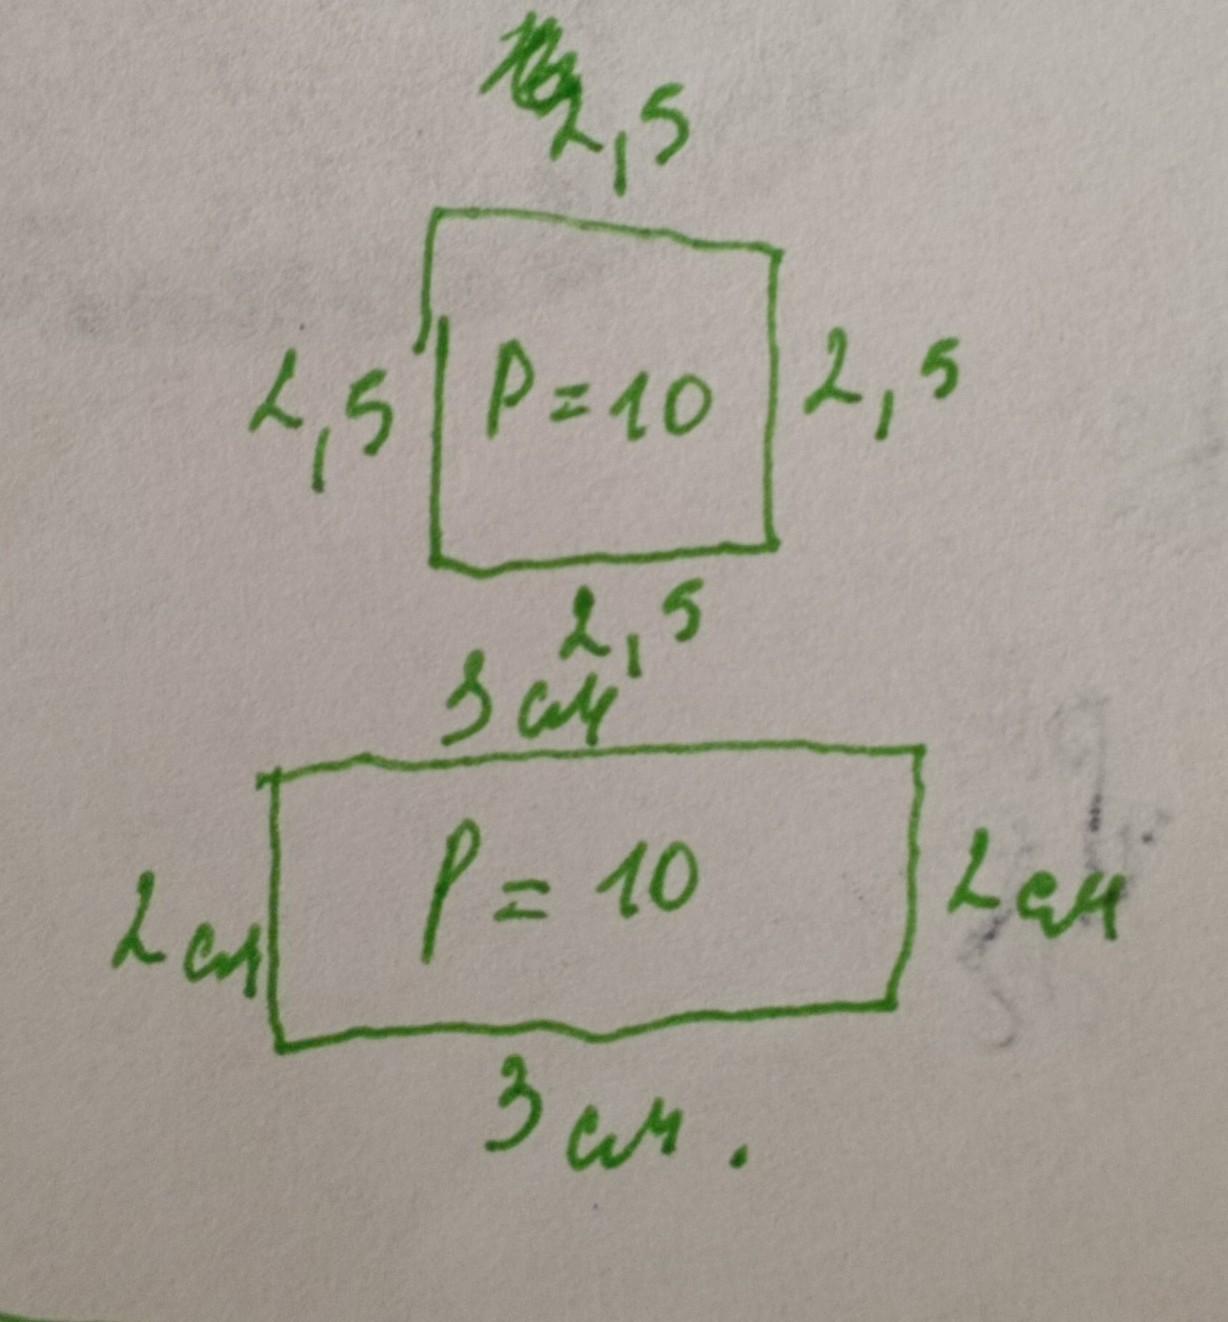 2,5
2,5 P=10 2,5
2,5
3 см
2 см P = 10 2 см
3 см.